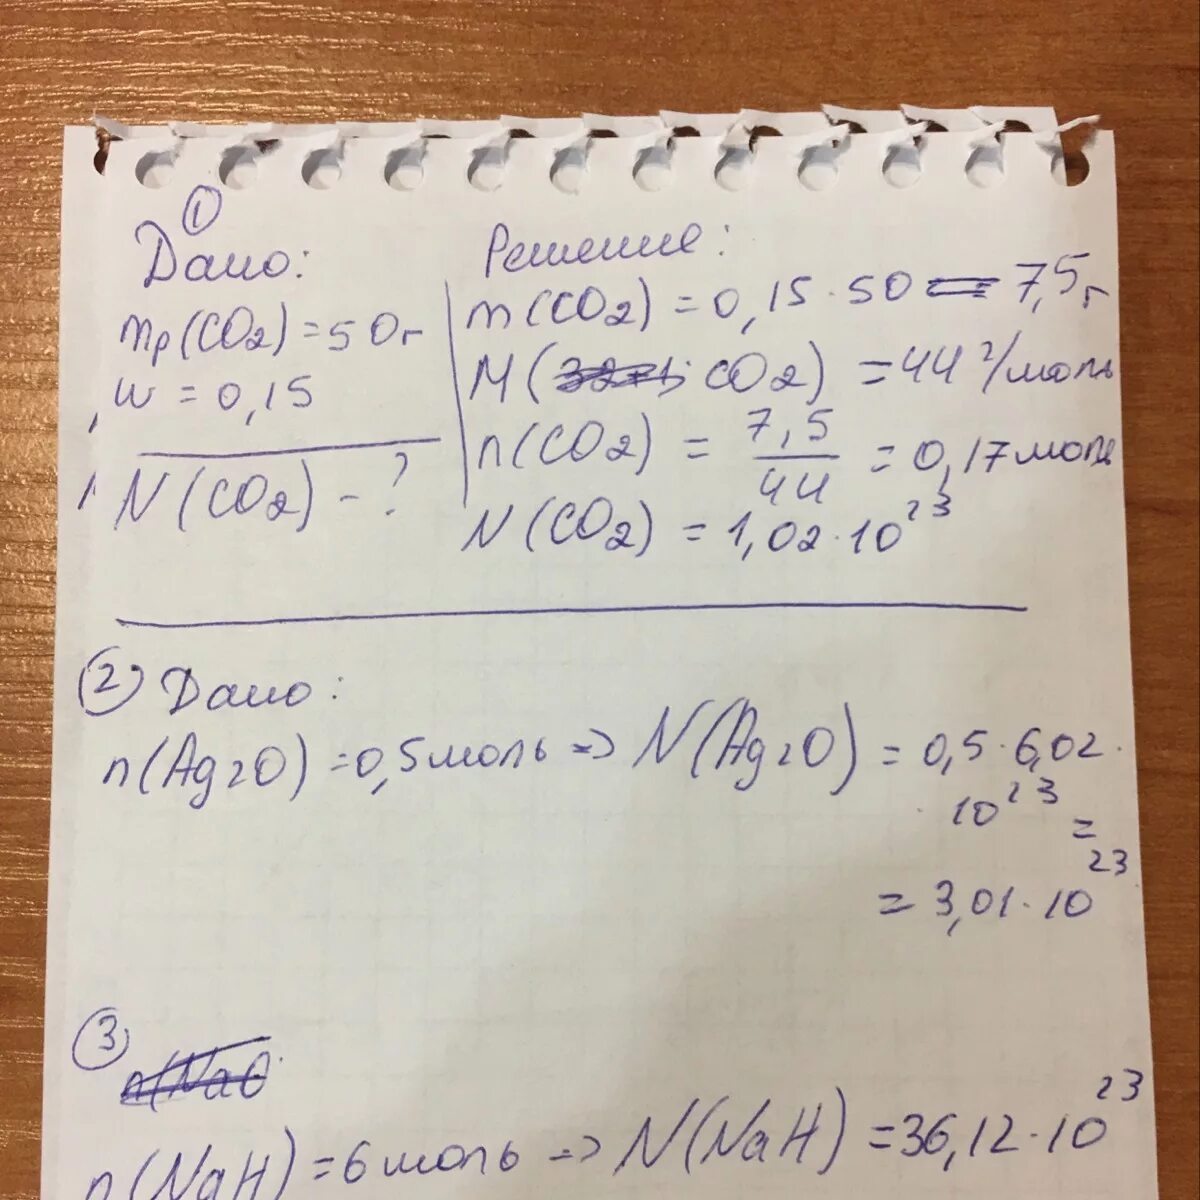 1
Дано:
mр(CO2) = 50г
w = 0,15
N(CO2) - ?
Решение:
m(CO2) = 0,15 · 50 = 7,5г
M(CO2) = 44 г/моль
n(CO2) = 7,5/44 = 0,17моль
N(CO2) = 1,02 · 10²³
2 Дано:
n(Ag2O) = 0,5моль => N(Ag2O) = 0,5 · 6,02 ·
· 10²³ =
= 3,01 · 10²³
3
n(NaH) = 6моль => N(NaH) = 36,12 · 10²³